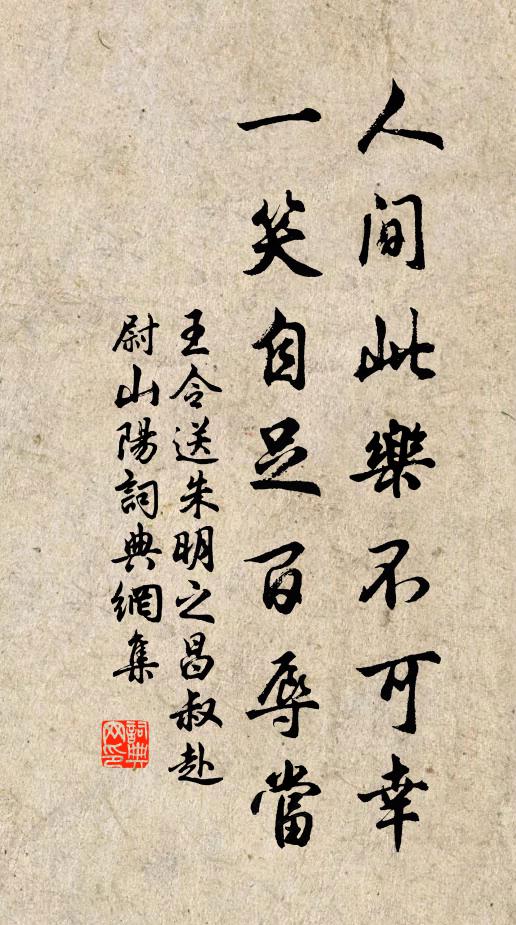 人間此樂不可幸
一笑自足百辱當
王令送朱明之昌叔赴
尉山陽詞典網集
詞典
网印